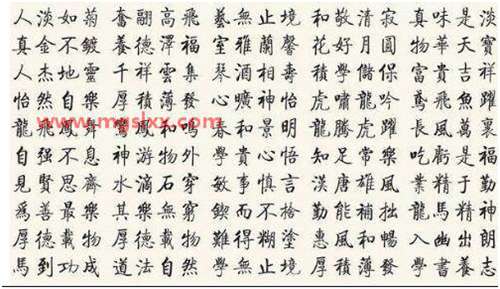 人淡如菊 奮翮高飛 藝無止境 和敬清寂 真味是淡
真金不鍍 養德澤福 室雅蘭馨 花好月圓 物華天寶
人杰地靈 千祥雲集 琴酒相壽 積學儲保 富貴吉祥
怡然自樂 厚積薄發 心曠神怡 虎嘯龍吟 鳶飛魚躍
龍飛鳳舞 鳳和鳴 春和景明 龍騰虎躍 長風萬裏
自强不息 神游物外 學貴心悟 知足常樂 吃虧是福
見賢思齊 水滴石穿 敏事慎言 漢唐雄風 業精于勤
爲善最樂 其樂無窮 鍥而不捨 勤能補拙 龍馬精神
厚德載物 厚德載物 難得糊塗 惠風和暢 入幽出朗
馬到功成 道法自然 學無止境 厚積薄發 學書養